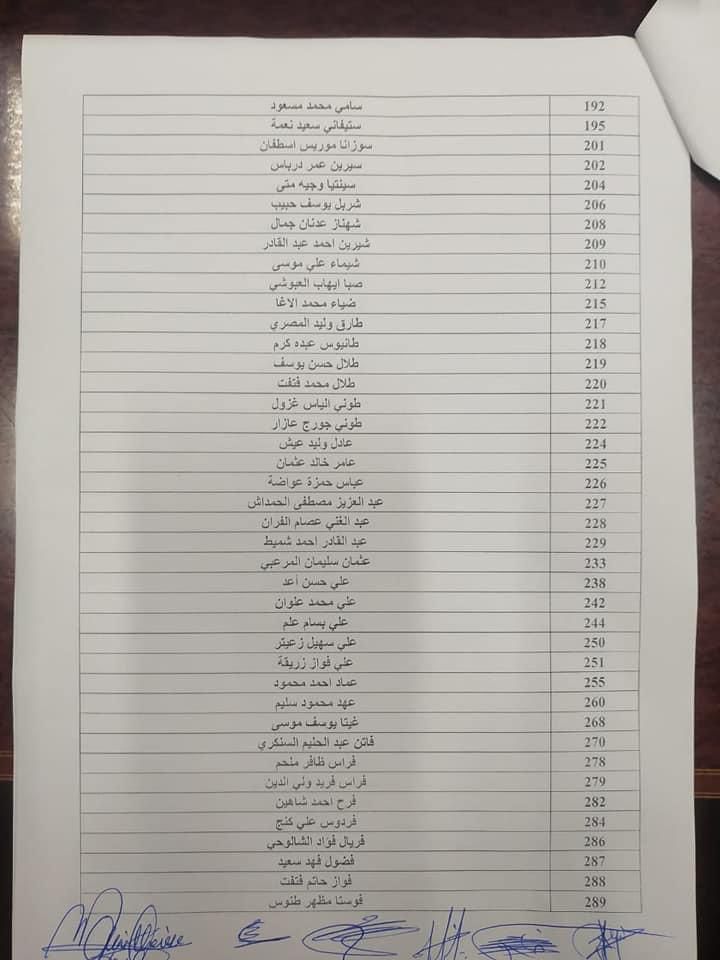 192 سامي محمد مسعود
195 ستيفاني سعيد نعمة
201 سوزانا موريس اسطفان
202 سيرين عمر درباس
204 سينتيا وجيه متى
206 شربل يوسف حبيب
208 شهناز عدنان جمال
209 شيرين احمد عبد القادر
210 شيماء علي موسى
212 صبا ايهاب العبوشي
215 ضياء محمد الاغا
217 طارق وليد المصري
218 طانيوس عبده كرم
219 طلال حسن يوسف
220 طلال محمد فتفت
221 طوني الياس غزول
222 طوني جورج عازار
224 عادل وليد عيش
225 عامر خالد عثمان
226 عباس حمزة عواضة
227 عبد العزيز مصطفى الحمداش
228 عبد الغني عصام الفران
229 عبد القادر احمد شميط
233 عثمان سليمان المرعبي
238 علي حسن أعد
242 علي محمد علوان
244 علي بسام علم
250 علي سهيل زعيتر
251 علي فواز زريقة
255 عماد احمد محمود
260 عهد محمود سليم
268 غيتا يوسف موسى
270 فاتن عبد الحليم السنكري
278 فراس ظافر ملحم
279 فراس فريد ولي الدين
282 فرح احمد شاهين
284 فردوس علي كنج
286 فريال فؤاد الشالوحي
287 فضول فهد سعيد
288 فواز حاتم فتفت
289 فوستا مظهر طنوس